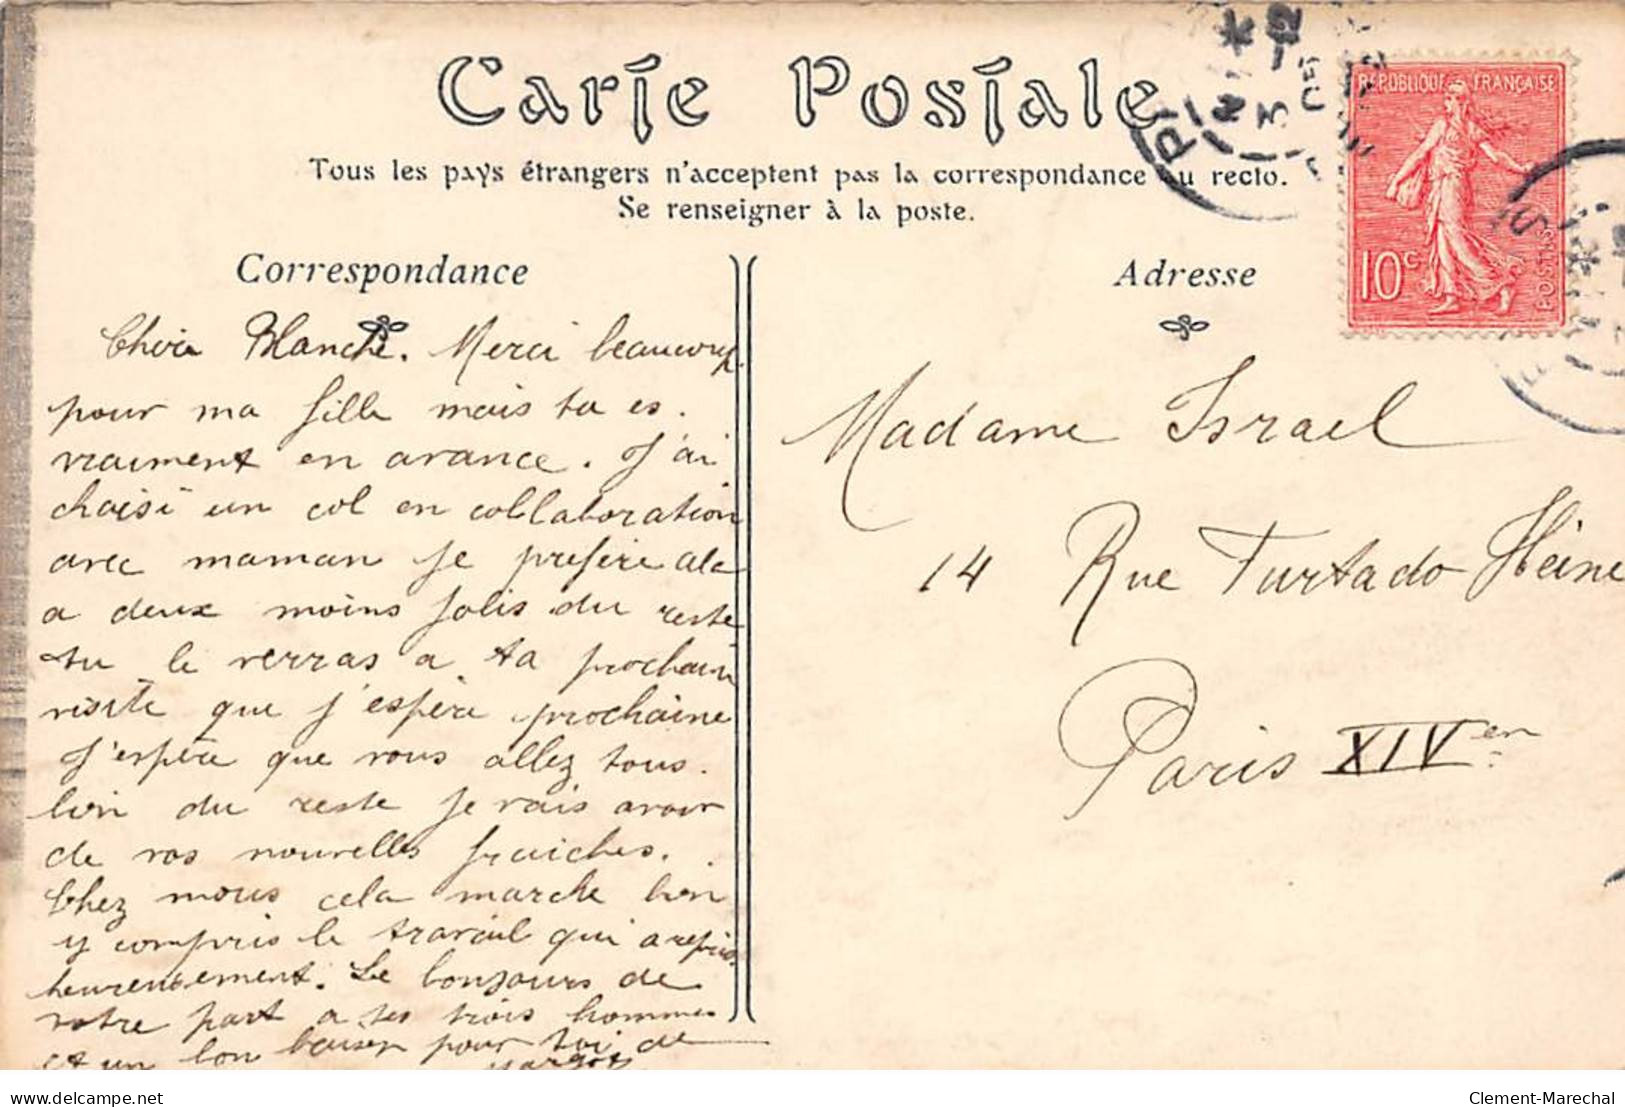 Carte Postale
Tous les pays étrangers n'acceptent pas la correspondance au recto.
Se renseigner à la poste.
Correspondance
Chère Blanche. Merci beaucoup
pour ma fille mais tu es
vraiment en avance. J'ai
choisi un col en collaboration
avec maman je préfère
a deux moins jolis du reste
tu le verras a ta prochain
visite que j'espère prochaine
J'espère que vous allez tous
bien du reste je vais avoir
de vos nouvelles fraiches.
Chez nous cela marche bien
y compris le travail qui a repris
heureusement. Le bonjours de
votre part a tes trois hommes
et un bon baiser pour toi de
Margot
Adresse
Madame Israel
14 Rue Furtado Heine
Paris XIVen
REPUBLIQUE FRANÇAISE
10c
POSTES
delcampe.net
Clement-Marechal